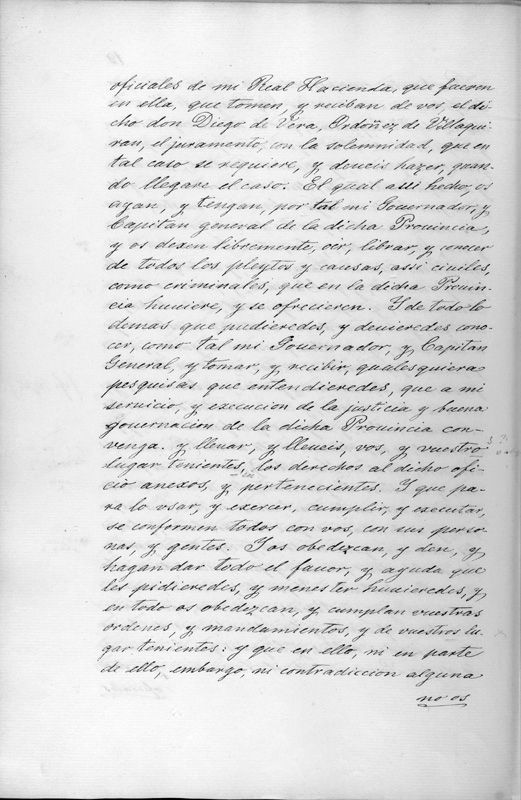 oficiales de mi Real Hacienda, que fueren
en ella, que tomen, y reciban de vos, el di-
cho don Diego de Vera, Ordoñez de Villaqui-
ran, el juramento, con la solemnidad, que en
tal caso se requiere, y deueis hazer, quan-
do llegare el caso. El qual assi hecho, os
ayan, y tengan, por tal mi Gouernador, y
Capitan general de la dicha Prouincia,
y os dexen libremente, oir, librar, y conocer
de todos los pleytos y causas, assi ciuiles,
como criminales, que en la dicha Prouin-
cia huuiere, y se ofrecieren. Y de todo lo
demas que pudieredes, y deuieredes cono-
cer, como tal mi Gouernador, y Capitan
General, y tomar, y recibir, qualesquiera
pesquisas que entendieredes, que a mi
seruicio, y execucion de la justicia y buena
gouernacion de la dicha Prouincia con-
uenga. y lleuar, y lleueis, vos, y vuestro
lugar tenientes, los derechos al dicho ofi-
cio anexos, y pertenecientes. Y que pa-
ra lo vsar, y exercer, cumplir, y executar,
se conformen todos con vos, con sus perso-
nas, y gentes. Y os obedezcan, y den, y
hagan dar todo el fauor, y ayuda que
les pidieredes, y menester huuieredes, y
en todo os obedezcan, y cumplan vuestras
ordenes, y mandamientos, y de vuestros lu-
gar tenientes: y que en ello, ni en parte
de ello, embargo, ni contradiccion alguna
no os